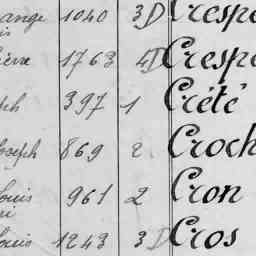 ange 1040 3 D Crespe
is
ière 1763 4 D Crespe
ph 397 1 Crété
Joseph 869 2 Croch
ouis 961 2 Cron
ouis 1243 3 D Cros